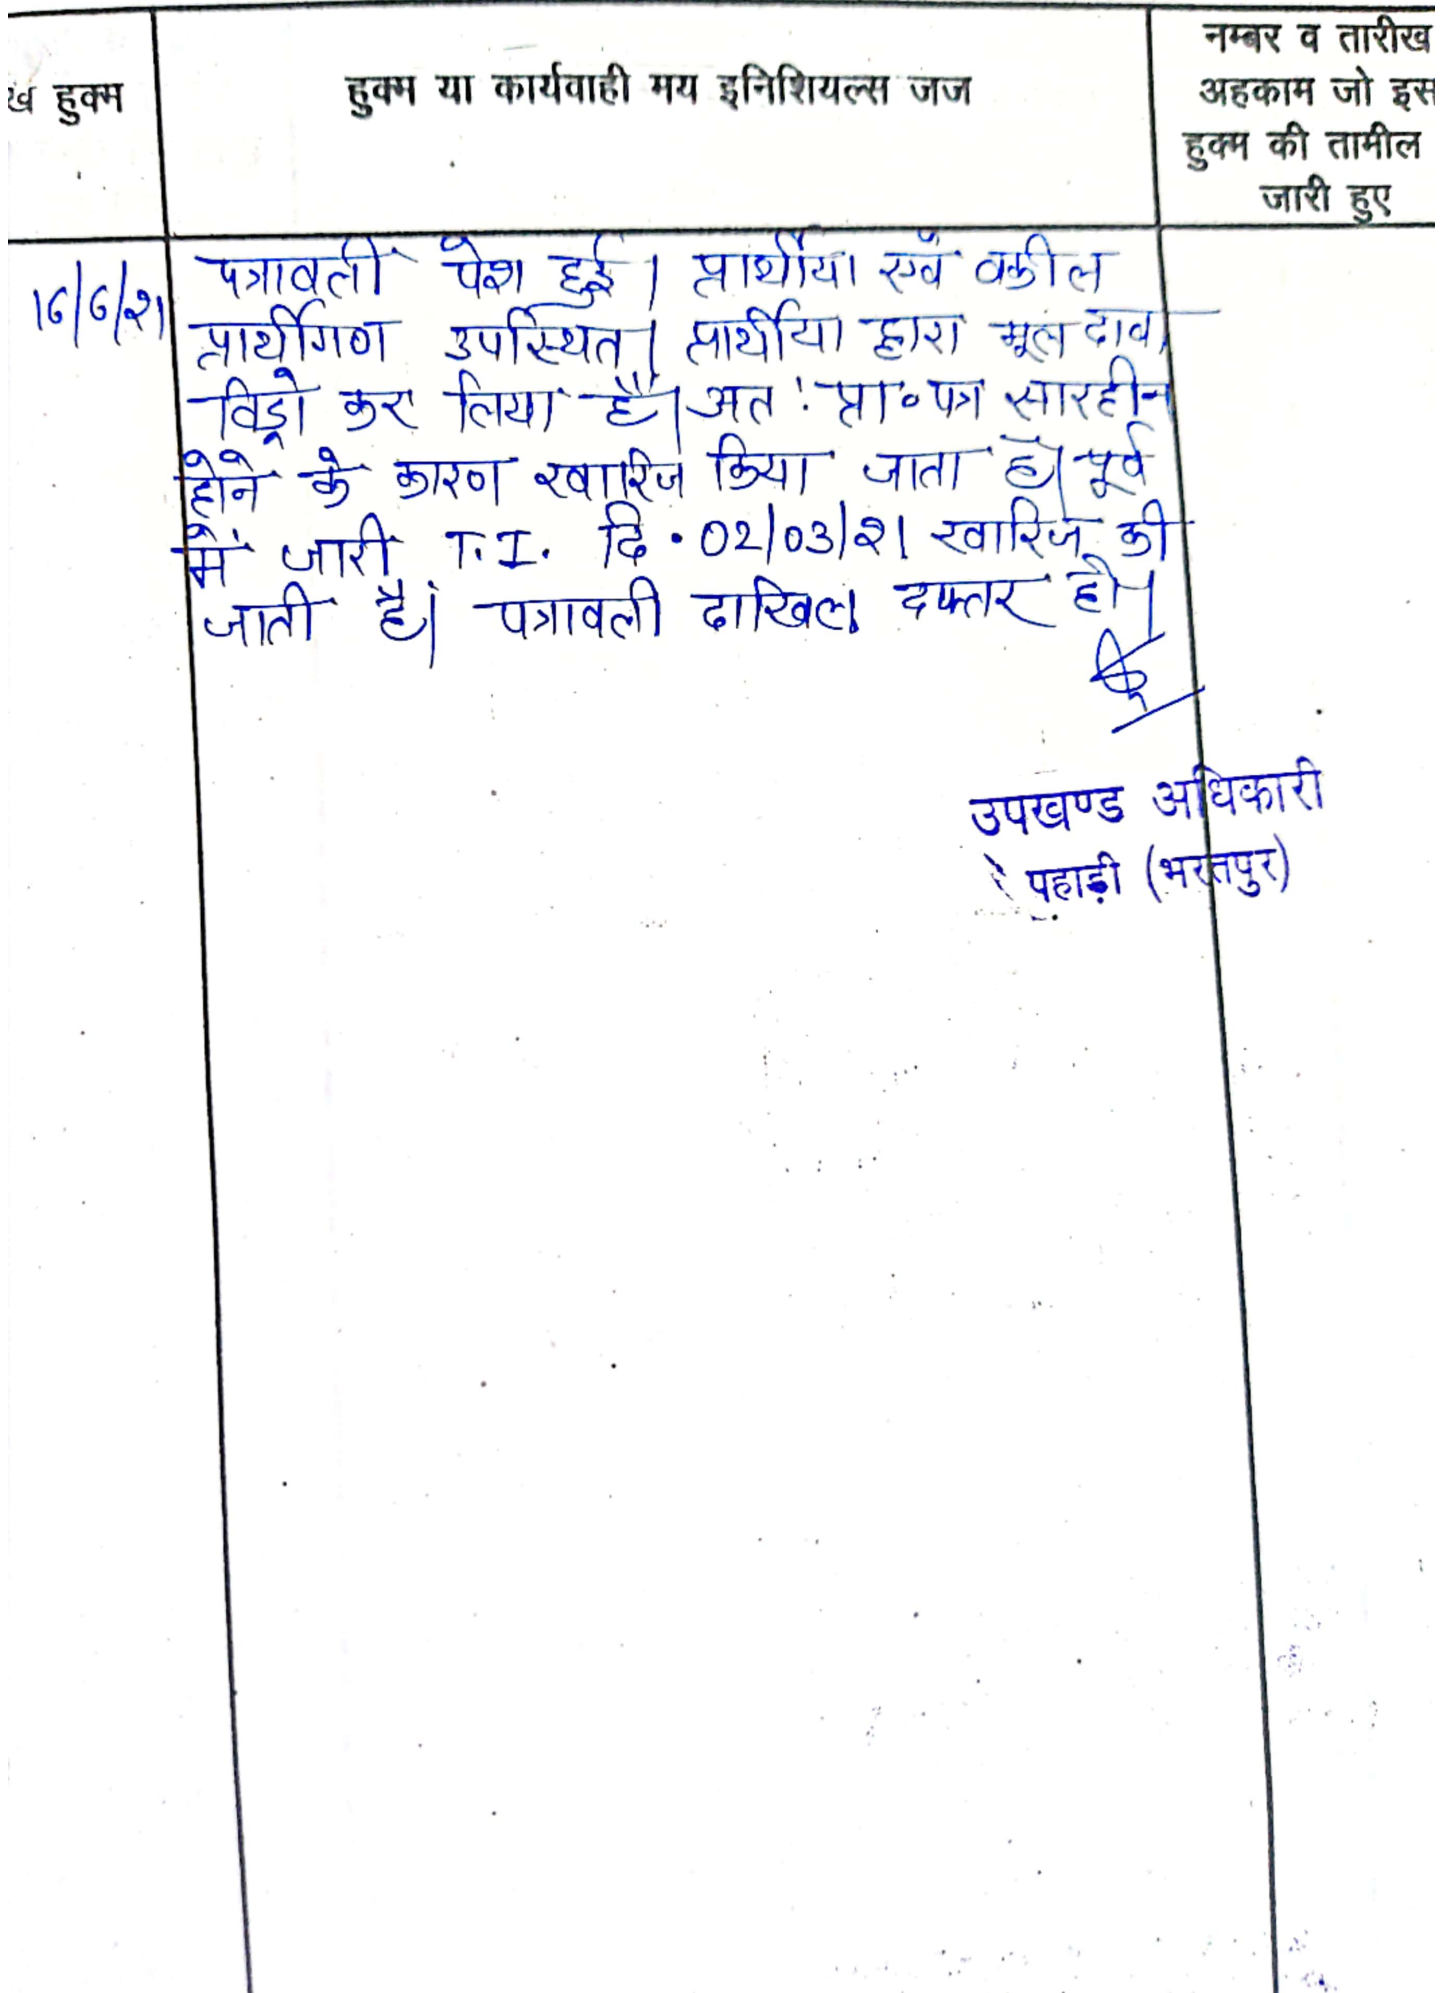 ख हुक्म
हुक्म या कार्यवाही मय इनिशियल्स जज
नम्बर व तारीख
अहकाम जो इस
हुक्म की तामील
जारी हुए
16/6/21
पत्रावली पेश हुई। प्रार्थीया एवं वकील
प्रार्थीगण उपस्थित। प्रार्थीया द्वारा मूल दावा
विड्रो कर लिया है। अतः प्रा० पत्र सारहीन
होने के कारण खारिज किया जाता है। पूर्व
में जारी T.I. दि. 02/03/21 खारिज की
जाती है। पत्रावली दाखिल दफ्तर हो।
उपखण्ड अधिकारी
पहाड़ी (भरतपुर)